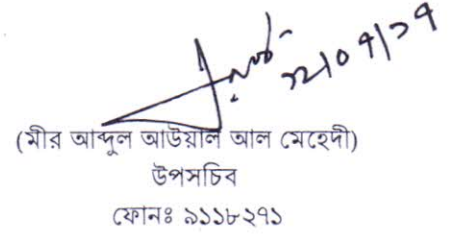 ১২/০৭/১৭
(মীর আব্দুল আউয়াল আল মেহেদী)
উপসচিব
ফোনঃ ৯১১৮২৭১